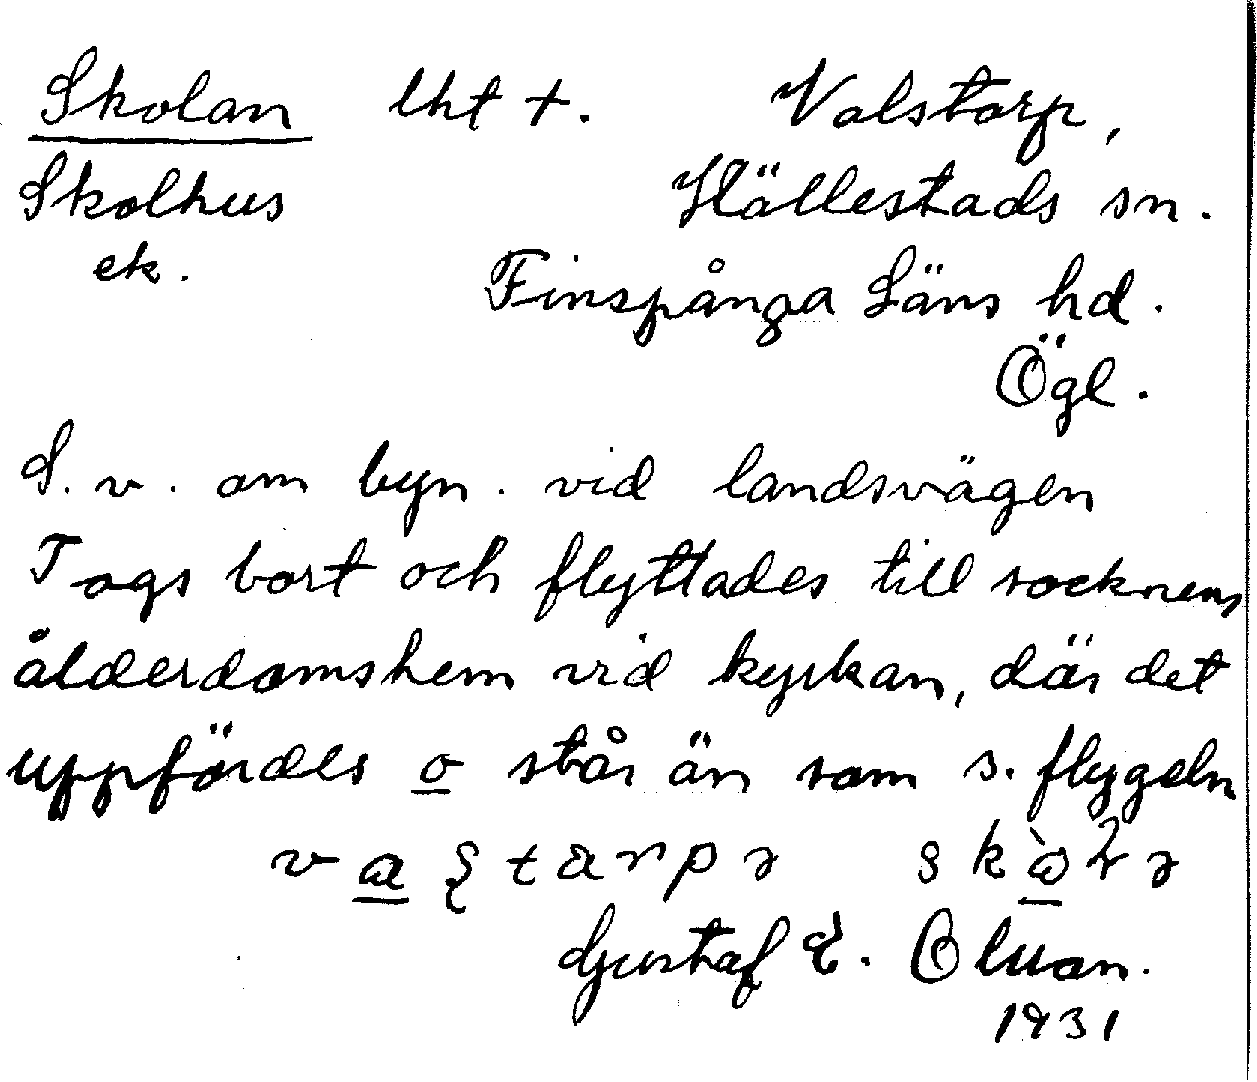 Skolan lht +. Valstorp,
Skolhus Hällestads sn.
ek. Finspånga Läns hd.
Ögl.
S. v. om byn. vid landsvägen
Togs bort och flyttades till socknens
ålderdomshem vid kyrkan, där det
uppfördes o står än som s. flygeln
Gustaf E.
1931